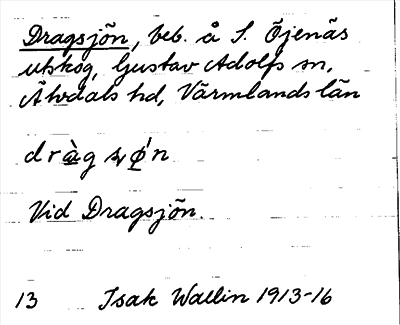 Dragsjön, beb. å S. Öjenäs
utskog, Gustav Adolfs sn,
Älvdals hd, Värmlands län
dràg sǿn
Vid Dragsjön.
13 Isak Wallin 1913-16